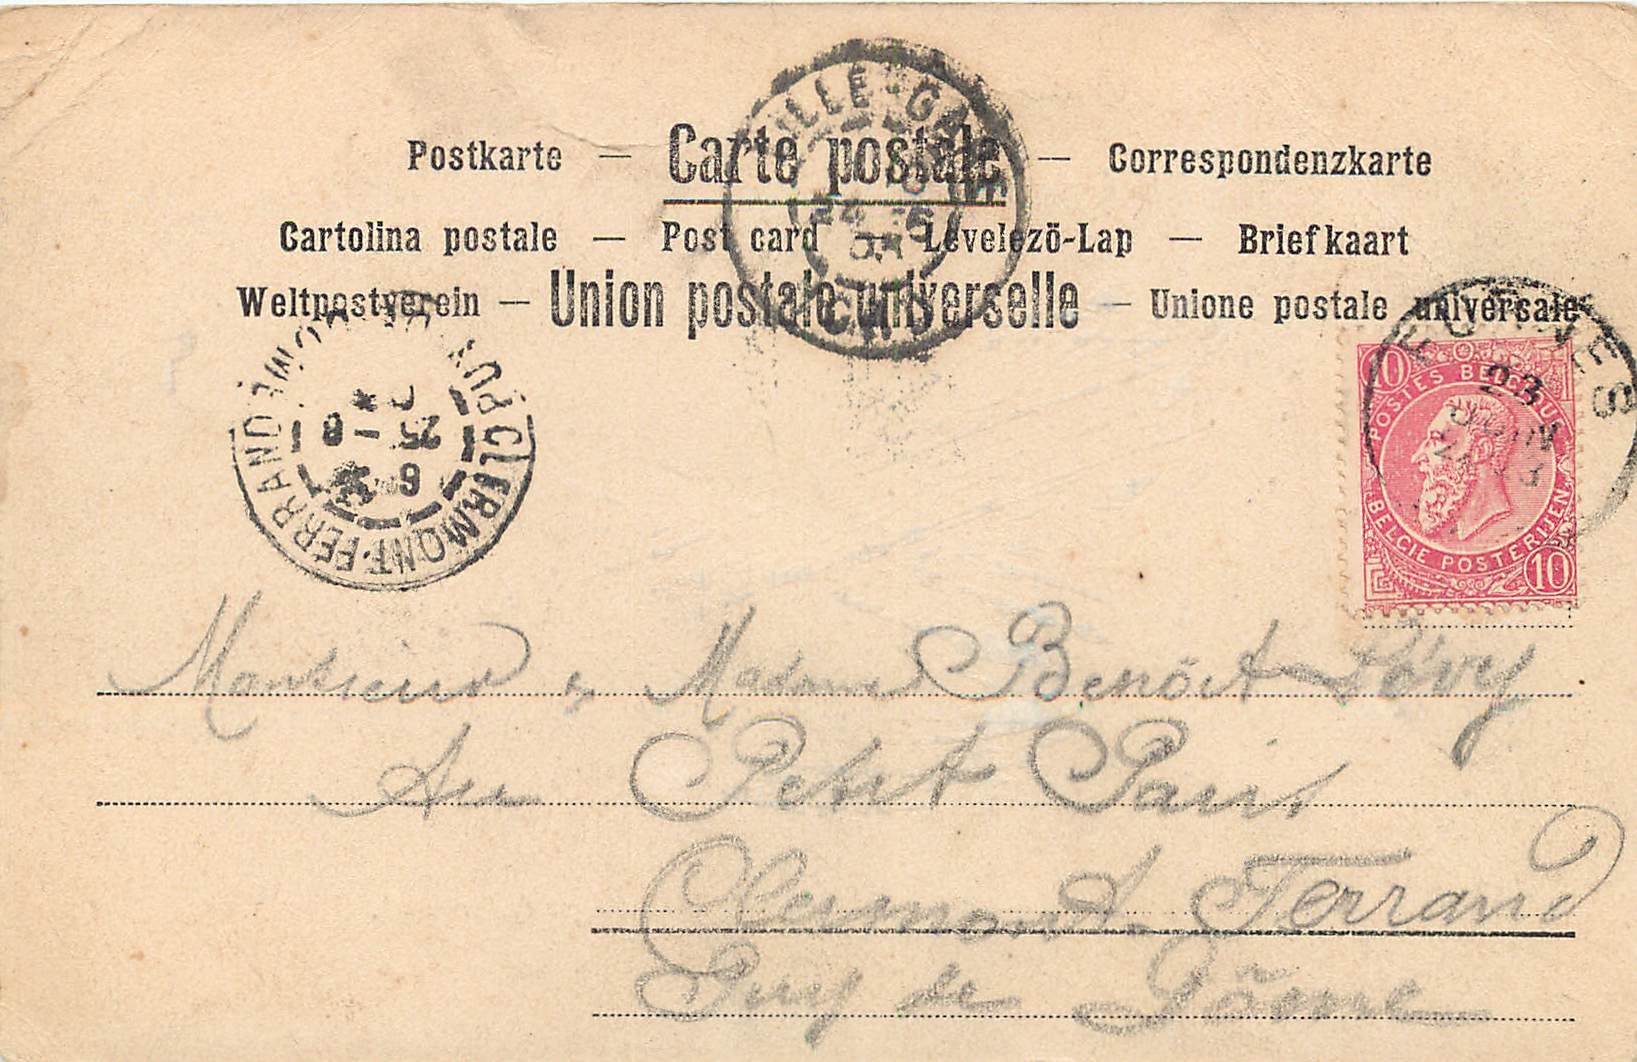 LILLE-GARE
Postkarte — Carte postale — Correspondenzkarte
24 -6
03
Cartolina postale — Post card — Levelezö-Lap — Briefkaart
NORD
Weltpostverein — Union postale universelle — Unione postale universale
FURNES
23
JUIN
10 POSTES BELGIQUE
BELGIE POSTERIJEN 10
CLERMONT-FERRAND PUY-DE-DOME
6
25 - 6
Monsieur & Madame Benoît Lévy
Au Petit Paris
Clermont-Ferrand
Puy de Dôme